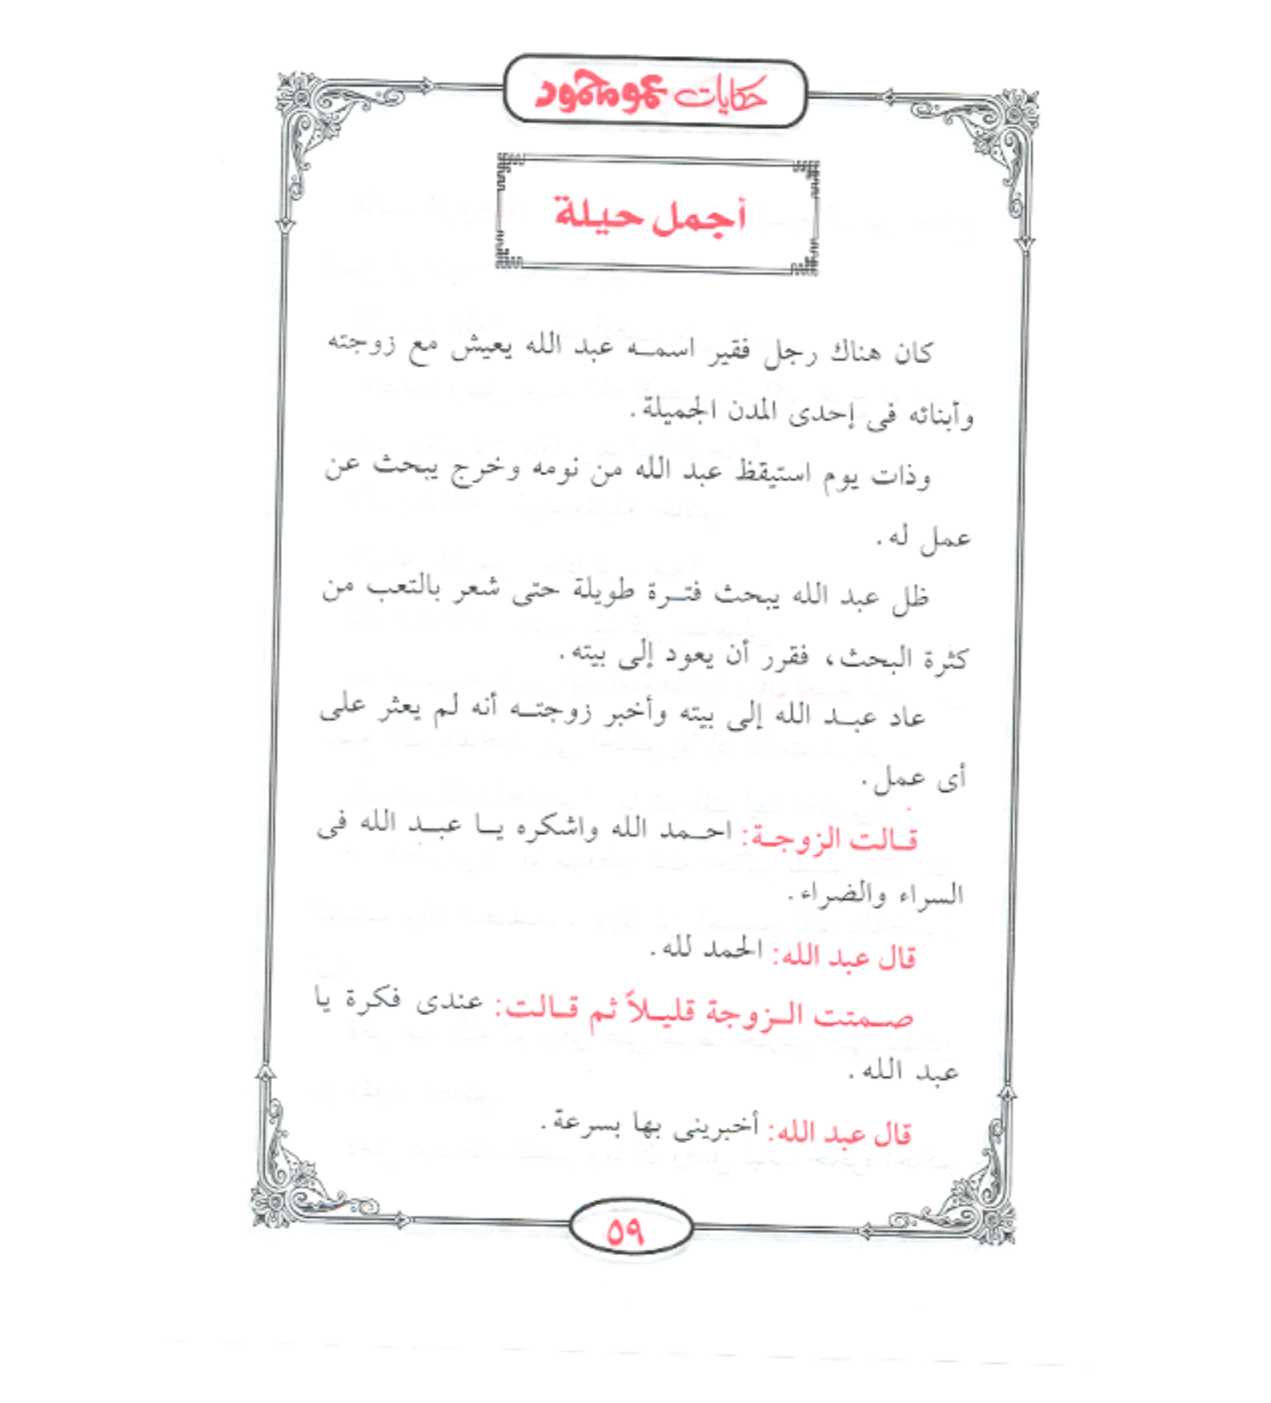 حكايات عمو محمود
أجمل حيلة
كان هناك رجل فقير اسمـه عبد الله يعيش مع زوجته
وأبنائه فى إحدى المدن الجميلة.
وذات يوم استيقظ عبد الله من نومه وخرج يبحث عن
عمل له.
ظل عبد الله يبحث فتـرة طويلة حتى شعر بالتعب من
كثرة البحث، فقرر أن يعود إلى بيته.
عاد عبـد الله إلى بيته وأخبر زوجتـه أنه لم يعثر على
أى عمل.
قـالت الزوجـة: احـمد الله واشكره يـا عبـد الله فى
السراء والضراء.
قال عبد الله: الحمد لله.
صـمتت الـزوجة قليـلاً ثم قـالت: عندى فكرة يا
عبد الله.
قال عبد الله: أخبرينى بها بسرعة.
٥٩